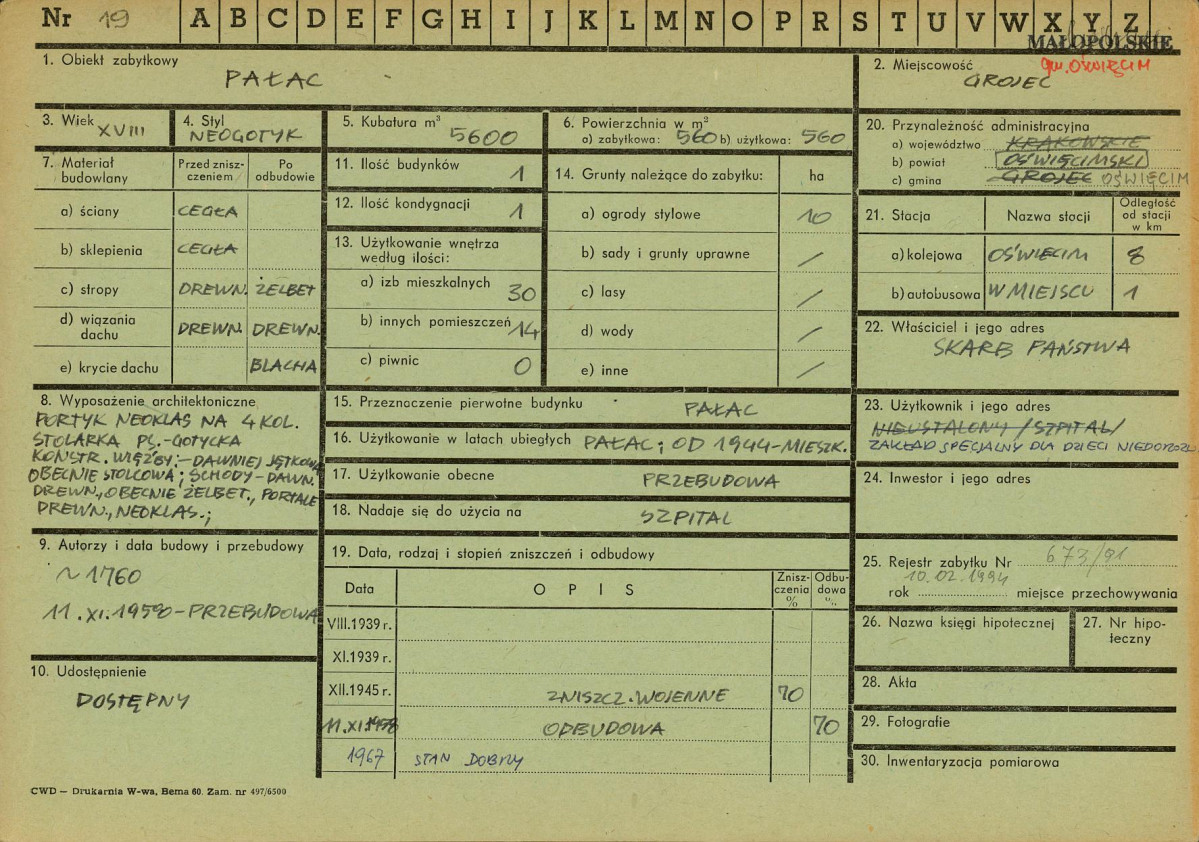 Nr 19 A B C D E F G H I J K L M N O P R S T U V W X Y Z
MAŁOPOLSKIE
1. Obiekt zabytkowy
PAŁAC
2. Miejscowość gm. OŚWIĘCIM
GROJEC
3. Wiek XVIII
4. Styl
NEOGOTYK
5. Kubatura m³
5600
6. Powierzchnia w m²
a) zabytkowa: 560 b) użytkowa: 560
7. Materiał budowlany
Przed zniszczeniem
Po odbudowie
a) ściany CEGŁA
b) sklepienia CEGŁA
c) stropy DREWN. ŻELBET
d) wiązania dachu DREWN. DREWN.
e) krycie dachu BLACHA
8. Wyposażenie architektoniczne
PORTYK NEOKLAS NA 4 KOL.
STOLARKA PS.-GOTYCKA
KONSTR. WIĘŹBY:-DAWNIEJ JĘTKOWA
OBECNIE STOLCOWA; SCHODY-DAWN.
DREWN., OBECNIE ŻELBET., PORTALE
DREWN., NEOKLAS.;
9. Autorzy i data budowy i przebudowy
~1760
11.XI.1958-PRZEBUDOWA
10. Udostępnienie
DOSTĘPNY
11. Ilość budynków 1
12. Ilość kondygnacji 1
13. Użytkowanie wnętrza
według ilości:
a) izb mieszkalnych 30
b) innych pomieszczeń 14
c) piwnic 0
14. Grunty należące do zabytku: ha
a) ogrody stylowe 10
b) sady i grunty uprawne /
c) lasy /
d) wody /
e) inne /
15. Przeznaczenie pierwotne budynku PAŁAC
16. Użytkowanie w latach ubiegłych PAŁAC; OD 1944-MIESZK.
17. Użytkowanie obecne PRZEBUDOWA
18. Nadaje się do użycia na SZPITAL
19. Data, rodzaj i stopień zniszczeń i odbudowy
Data OPIS Zniszczenia % Odbudowa %
VIII.1939 r.
XI.1939 r.
XII.1945 r. ZNISZCZ. WOJENNE 70
11.XI.1958 ODBUDOWA 70
1967 STAN DOBRY
20. Przynależność administracyjna
a) województwo KRAKOWSKIE
b) powiat OŚWIĘCIMSKI
c) gmina GROJEC OŚWIĘCIM
21. Stacja Nazwa stacji Odległość od stacji w km
a) kolejowa OŚWIĘCIM 8
b) autobusowa W MIEJSCU 1
22. Właściciel i jego adres
SKARB PAŃSTWA
23. Użytkownik i jego adres
NIEUSTALONY /SZPITAL/
ZAKŁAD SPECJALNY DLA DZIECI NIEDOROZW
24. Inwestor i jego adres
25. Rejestr zabytku Nr 673/91
10.02.1994
rok miejsce przechowywania
26. Nazwa księgi hipotecznej
27. Nr hipoteczny
28. Akta
29. Fotografie
30. Inwentaryzacja pomiarowa
CWD — Drukarnia W-wa, Bema 60. Zam. nr 497/6500